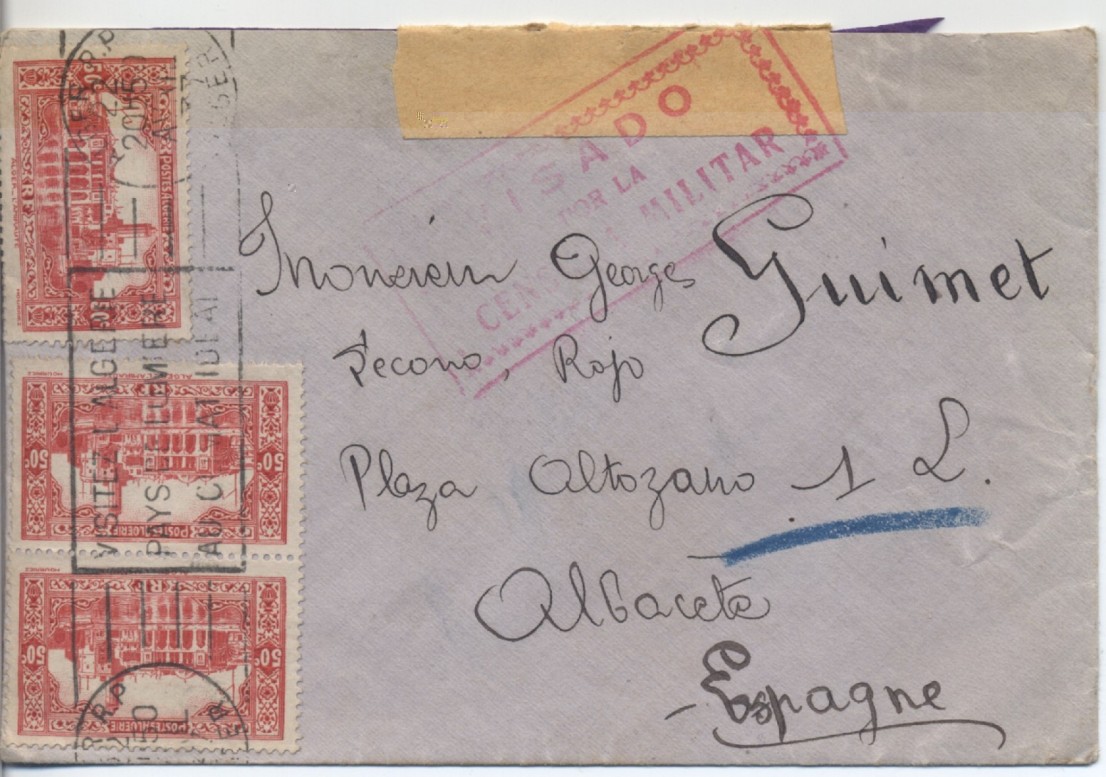 VISADO
POR LA
CENSURA MILITAR
Monsieur Georges Guimet
Secono, Rojo
Plaza Altozano 1 L.
Albacete
Espagne
VISITEZ L'ALGERIE
PAYS DE LUMIERE
AU CLIMAT IDEAL
ALGER R.P.
20H50
50c
POSTES ALGERIE
50c
50c
POSTES ALGERIE
50c
50c
POSTES ALGERIE